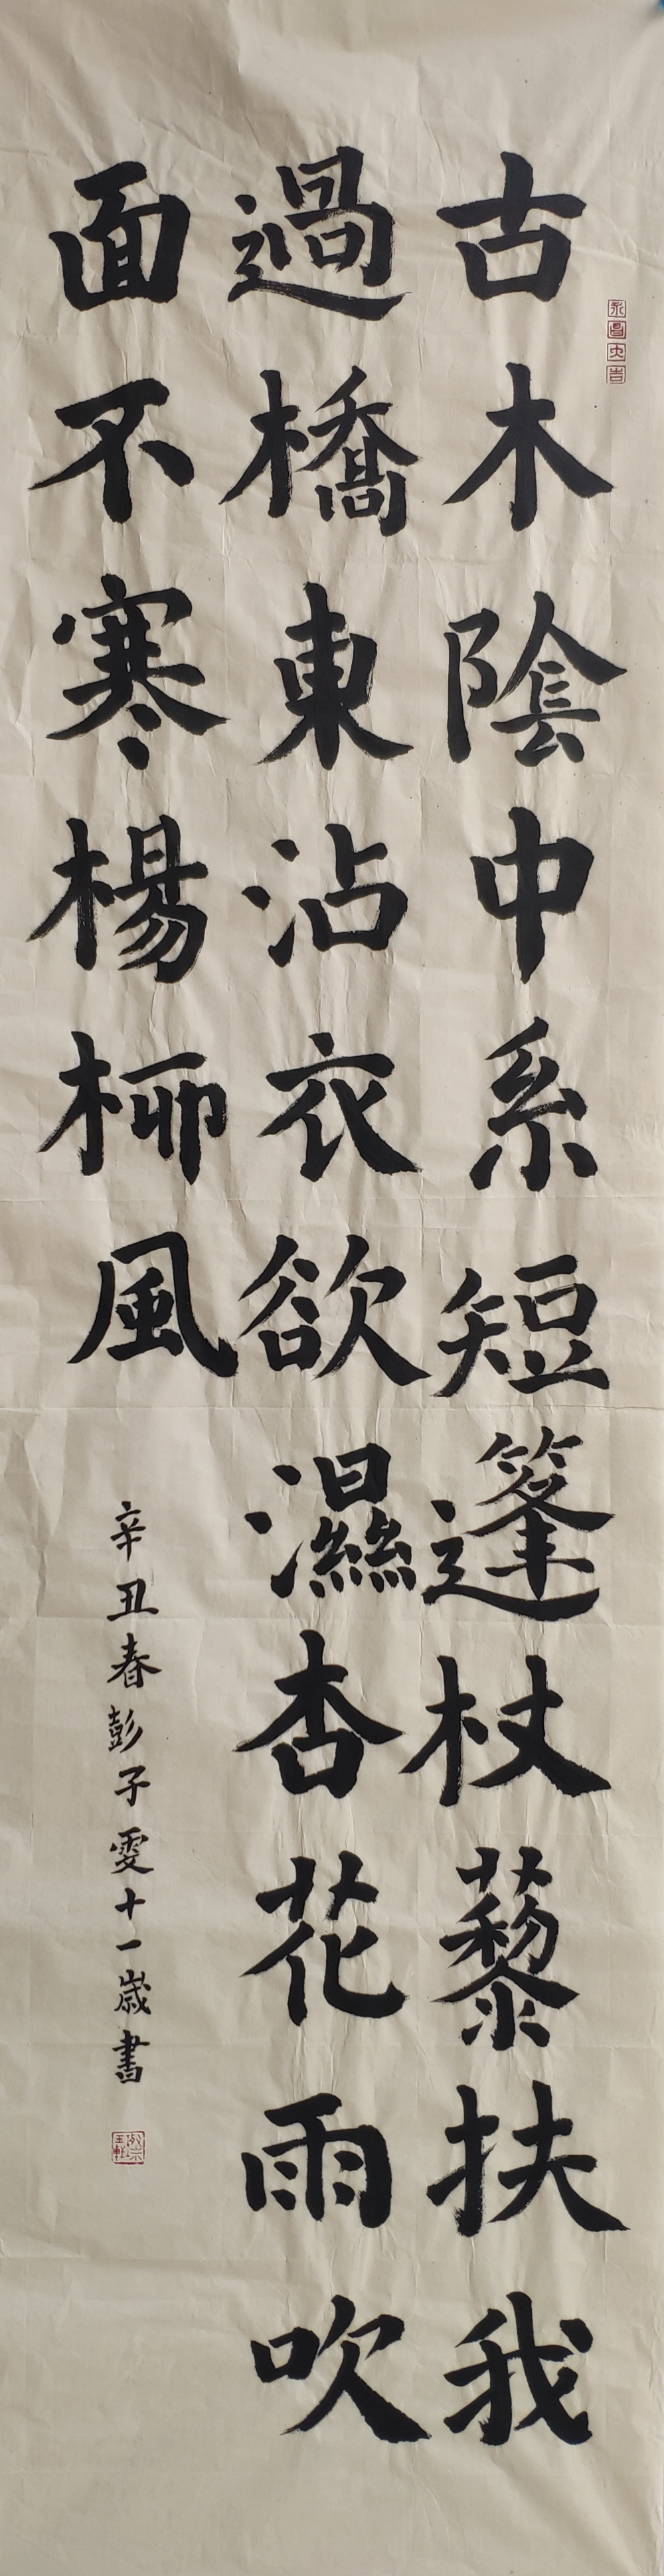 古木陰中系短篷杖藜扶我
過橋東沾衣欲濕杏花雨吹
面不寒楊柳風
辛丑春彭子雯十一歲書
永昌大吉